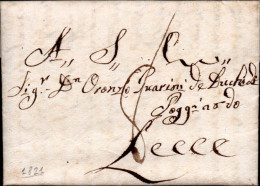 A" S" 
Sig.r Dn Oronzo Guarini de Duchi di
Poggiardo
Lecce
1821